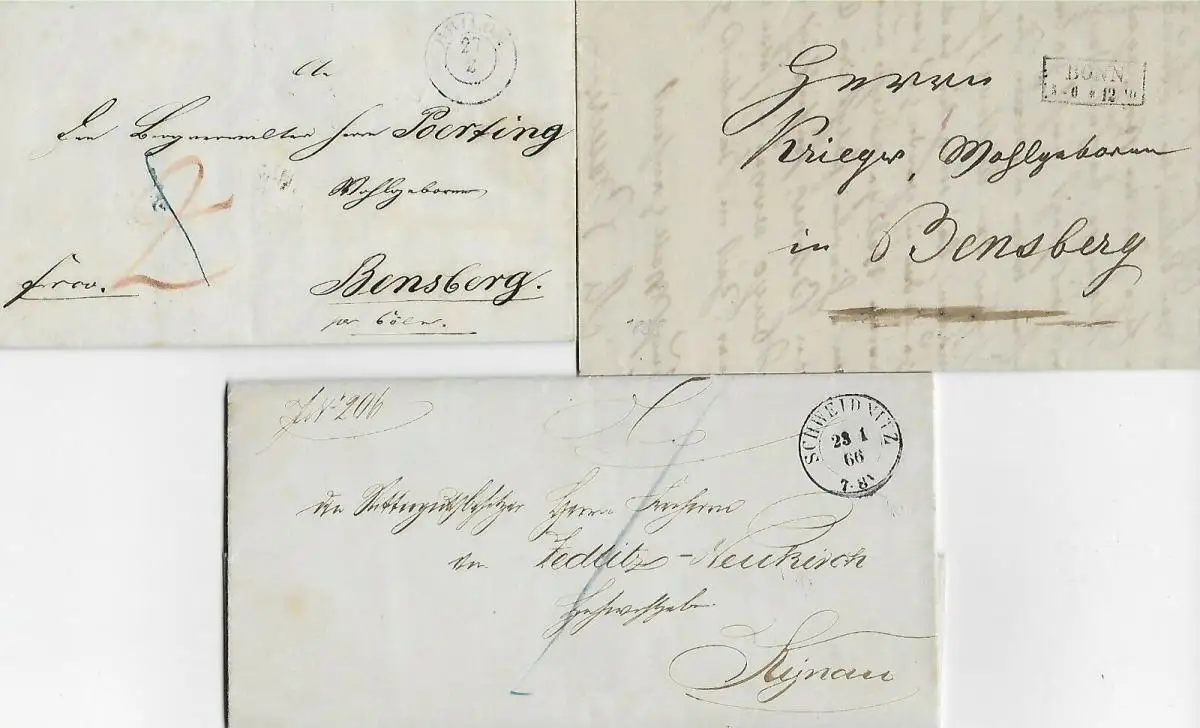 BRILON
27
2
An
den Bergverwalter Herrn Poerting
Wohlgeboren
2
frco.
Bensberg.
per Cöln.
BONN
12
Herrn
Krieger, Wohlgeboren
in Bensberg
No 206
SCHWEIDNITZ
23 1
66
7-8V
An
den Rittergutsbesitzer Herrn Freiherrn
von Zedlitz-Neukirch
Hochwohlgeboren
Kynau